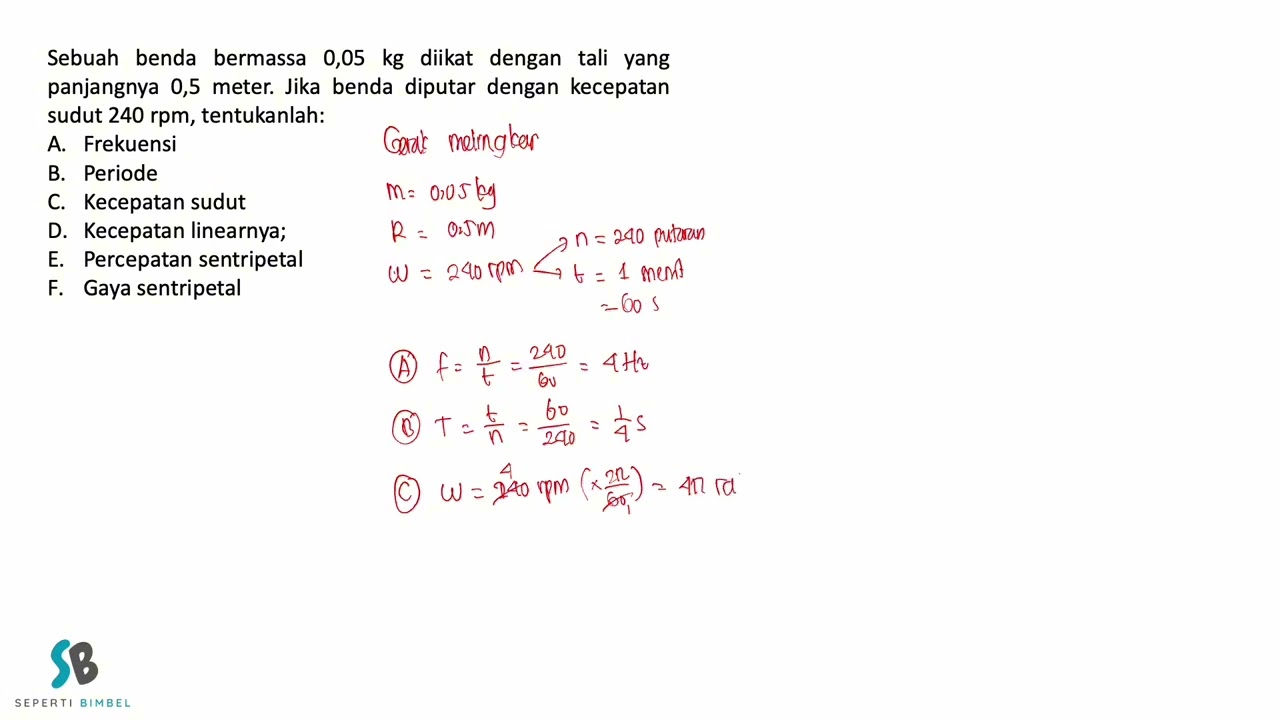 Sebuah benda bermassa 0,05 kg diikat dengan tali yang
panjangnya 0,5 meter. Jika benda diputar dengan kecepatan
sudut 240 rpm, tentukanlah:
A. Frekuensi
B. Periode
C. Kecepatan sudut
D. Kecepatan linearnya;
E. Percepatan sentripetal
F. Gaya sentripetal
Gerak melingkar
m = 0,05 kg
R = 0.5 m
ω = 240 rpm
n = 240 putaran
t = 1 menit
= 60 s
A f = n/t = 240/60 = 4 Hz
B T = t/n = 60/240 = 1/4 s
C ω = 240 4 rpm (× 2π/60 1) = 4π ra
SB
SEPERTI BIMBEL